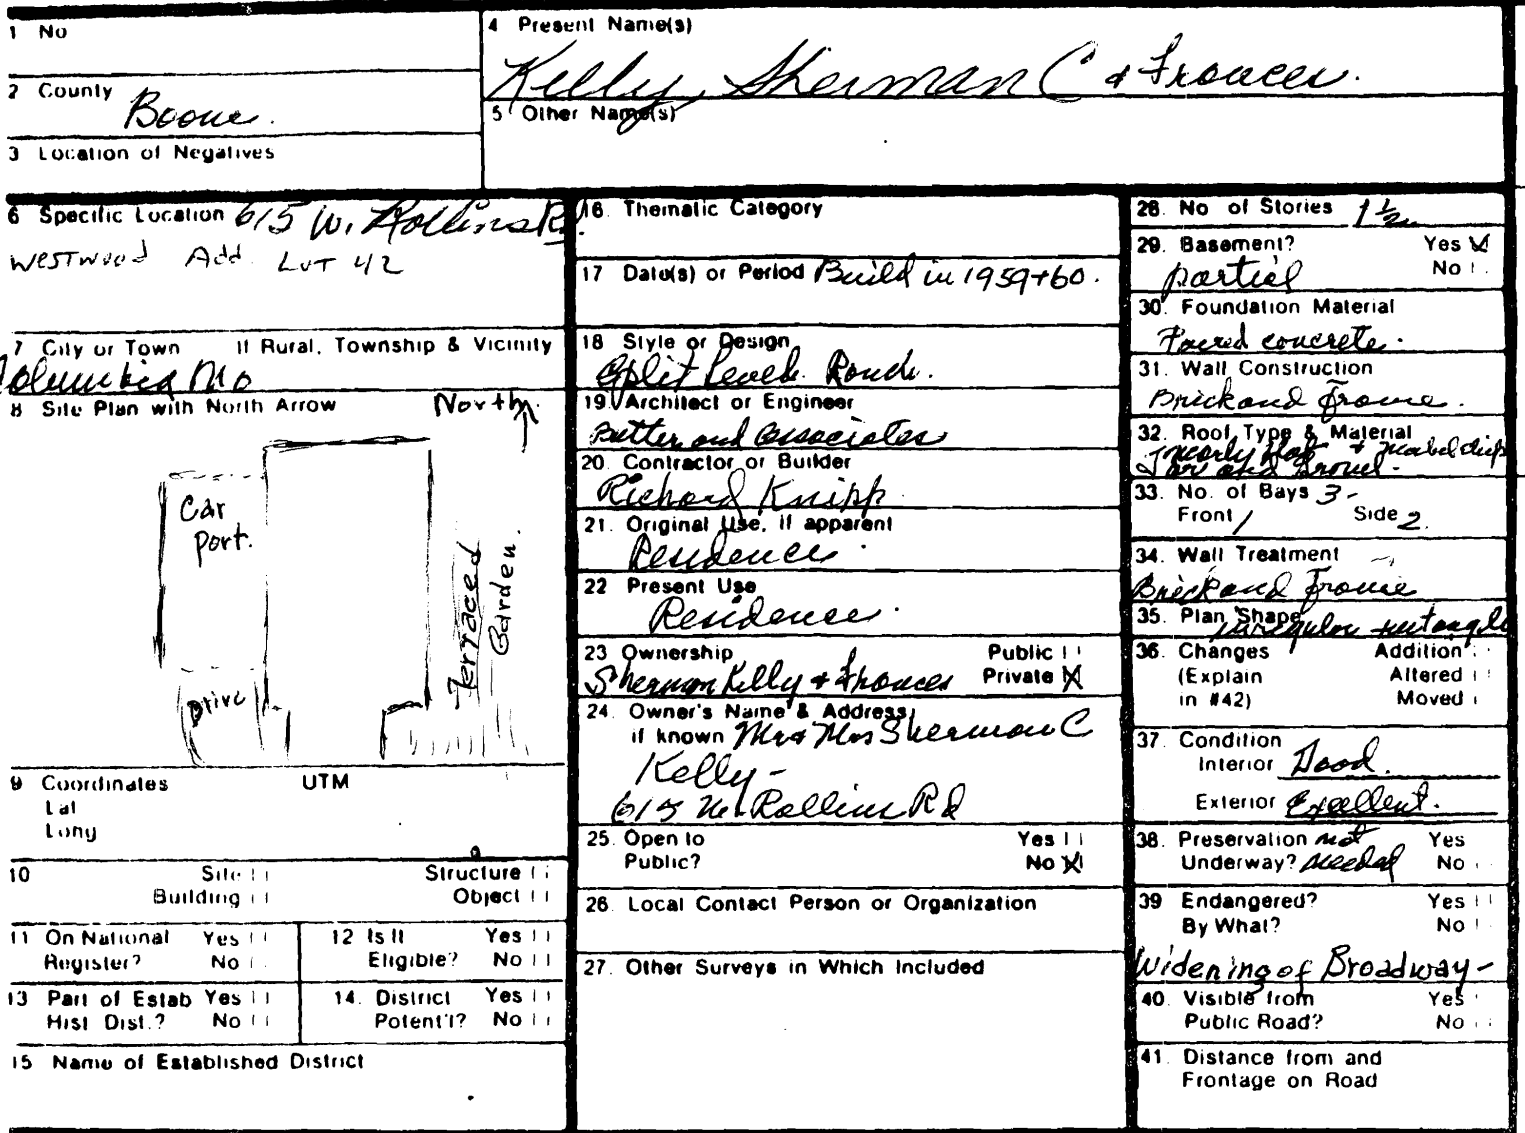 1 No
4 Present Name(s)
Kelly, Sherman C & Frances.
2 County
Boone.
5 Other Name(s)
3 Location of Negatives
6 Specific Location 615 W. Rollins Rd.
Westwood Add. Lot 42
7 City or Town If Rural, Township & Vicinity
Columbia Mo
8 Site Plan with North Arrow
North
Car
port.
Drive
Terraced
Garden.
9 Coordinates UTM
Lat
Long
10 Site Structure
Building Object
11 On National Yes
Register? No
12 Is It Yes
Eligible? No
13 Part of Estab Yes
Hist Dist.? No
14. District Yes
Potent'l? No
15 Name of Established District
16. Thematic Category
17 Date(s) or Period Build in 1959+60.
18 Style or Design
Split Level. Ranch.
19. Architect or Engineer
and Associates
20. Contractor or Builder
Richard Knipp.
21. Original Use, if apparent
Residence.
22 Present Use
Residence.
23 Ownership Public
Sherman Kelly & Frances Private X
24. Owner's Name & Address,
if known Mr & Mrs Sherman C
Kelly-
615 W. Rollins Rd
25. Open to Yes
Public? No X
26. Local Contact Person or Organization
27. Other Surveys in Which Included
28. No of Stories 1 1/2
29. Basement? Yes X
partial No
30. Foundation Material
Poured concrete.
31. Wall Construction
Brick and Frame.
32. Roof Type & Material
nearly flat +
Tar and Gravel.
33. No. of Bays 3-
Front 1 Side 2.
34. Wall Treatment
Brick and Frame
35. Plan Shape irregular rectangle
36. Changes Addition
(Explain Altered
in #42) Moved
37. Condition
Interior Good.
Exterior Excellent.
38. Preservation not Yes
Underway? needed No
39 Endangered? Yes
By What? No
Widening of Broadway-
40. Visible from Yes
Public Road? No
41. Distance from and
Frontage on Road